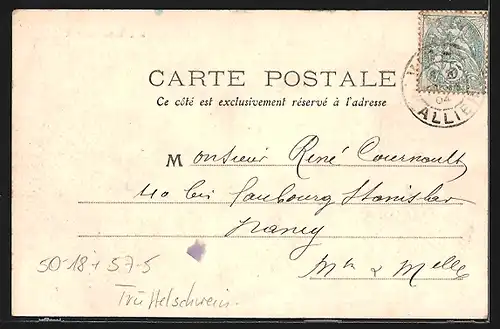 CARTE POSTALE
Ce côté est exclusivement réservé à l'adresse
04
ALLIER
Monsieur René Cournault
40 bis Faubourg Stanislas
Nancy
Mth & Melle
50-18 + 57-5
Trüffelschwein